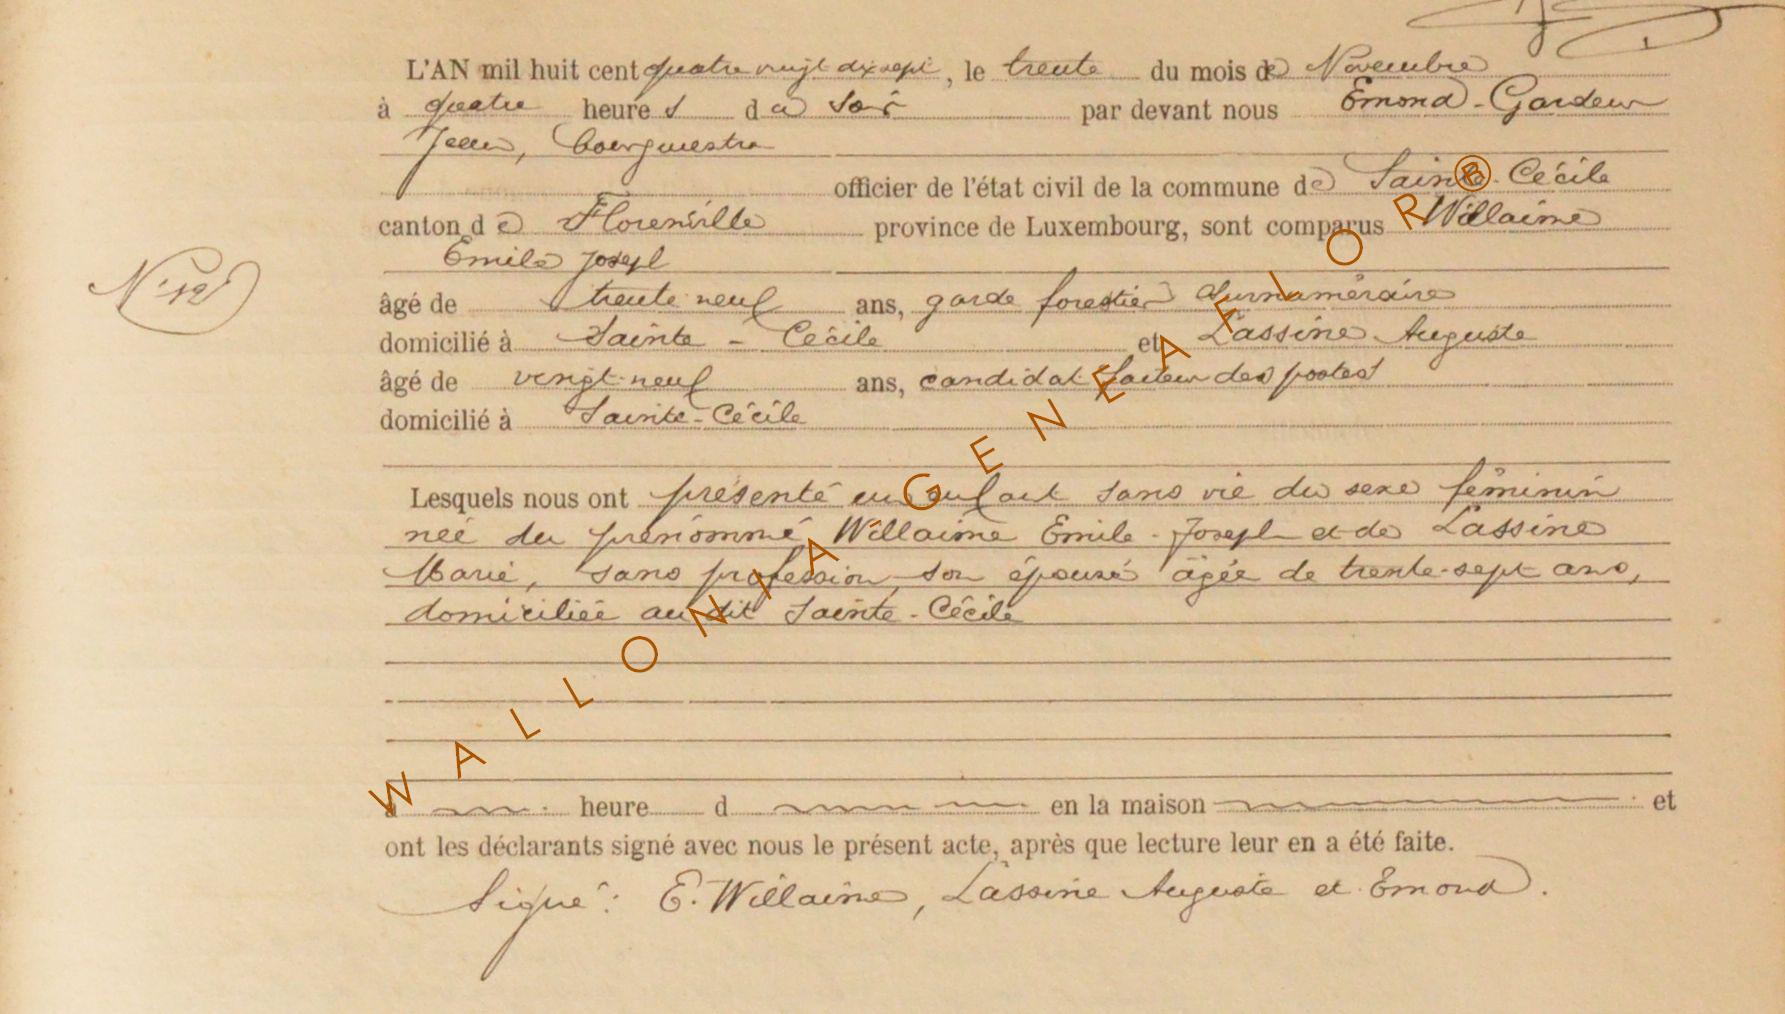 L'AN mil huit cent quatre vingt dix sept, le trente du mois de Novembre
à quatre heure s du soir par devant nous Emond-Gardeur
Jean, bourgmestre
officier de l'état civil de la commune de Sainte-Cécile
canton de Florenville province de Luxembourg, sont comparus Willaime
Emile Joseph
N° 12
âgé de trente neuf ans, garde forestier surnuméraire
domicilié à Sainte - Cécile et Lassine Auguste
âgé de vingt-neuf ans, candidat facteur des postes
domicilié à Sainte-Cécile
Lesquels nous ont présenté un enfant sans vie du sexe féminin
née du prénommé Willaime Emile-Joseph et de Lassine
Marie, sans profession, son épouse âgée de trente-sept ans,
domiciliée au dit Sainte-Cécile
à heure d en la maison et
ont les déclarants signé avec nous le présent acte, après que lecture leur en a été faite.
Signé : E. Willaime, Lassine Auguste et Emond.
WALLONIA GENEAFLOR®